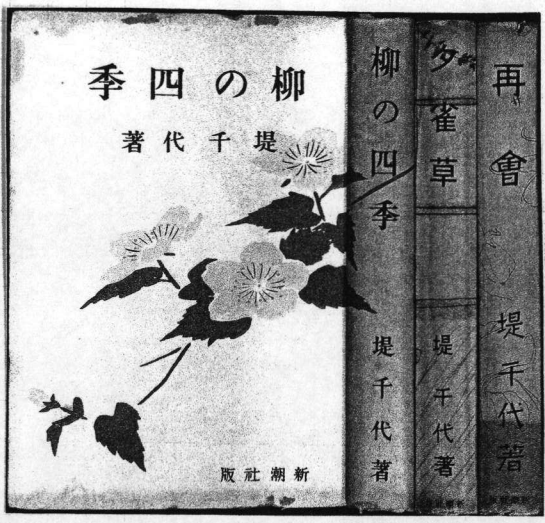 柳の四季
堤千代著
新潮社版
柳の四季
堤千代著
夕雀草
堤千代著
再會
堤千代著